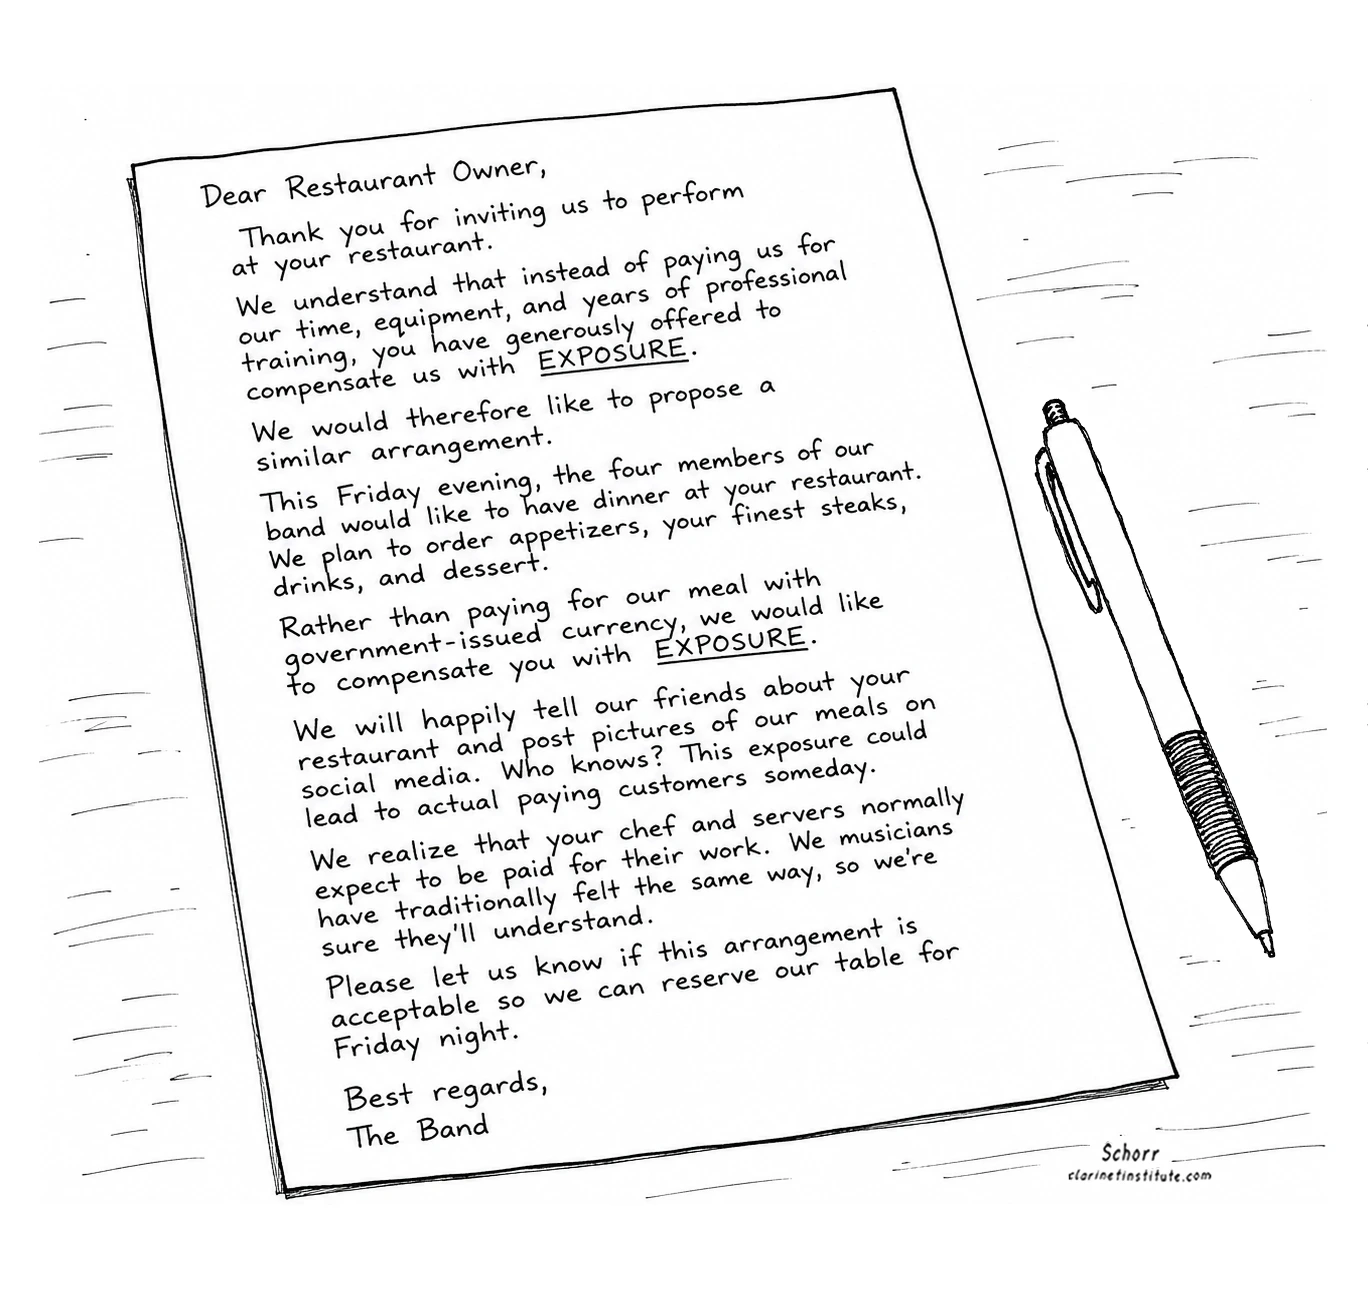 Dear Restaurant Owner,
Thank you for inviting us to perform
at your restaurant.
We understand that instead of paying us for
our time, equipment, and years of professional
training, you have generously offered to
compensate us with EXPOSURE.
We would therefore like to propose a
similar arrangement.
This Friday evening, the four members of our
band would like to have dinner at your restaurant.
We plan to order appetizers, your finest steaks,
drinks, and dessert.
Rather than paying for our meal with
government-issued currency, we would like
to compensate you with EXPOSURE.
We will happily tell our friends about your
restaurant and post pictures of our meals on
social media. Who knows? This exposure could
lead to actual paying customers someday.
We realize that your chef and servers normally
expect to be paid for their work. We musicians
have traditionally felt the same way, so we're
sure they'll understand.
Please let us know if this arrangement is
acceptable so we can reserve our table for
Friday night.
Best regards,
The Band
Schorr
clarinetinstitute.com